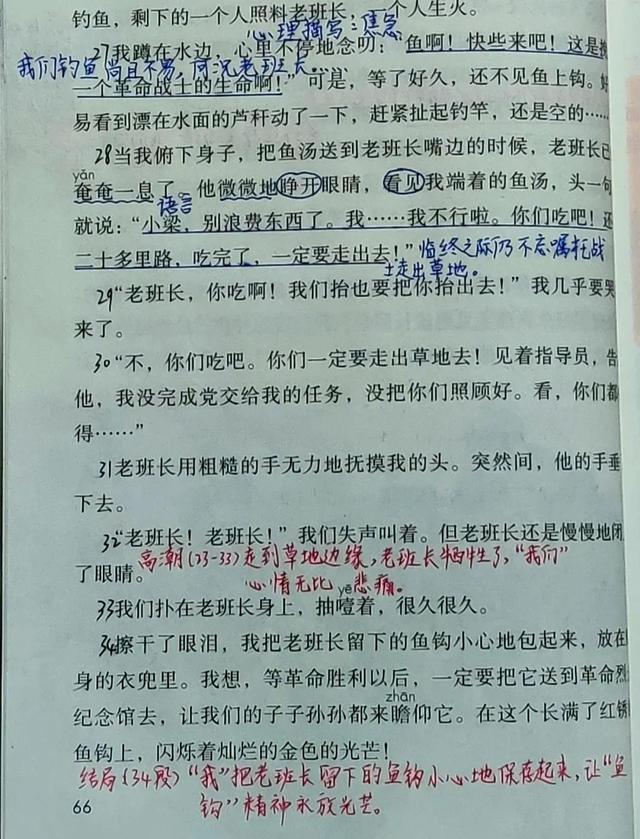 钓鱼，剩下的一个人照料老班长，一个人生火。
心理描写：焦急
27我蹲在水边，心里不停地念叨：“鱼啊！快些来吧！这是挽
我们钓鱼尚且不易，何况老班长……
一个革命战士的生命啊！”可是，等了好久，还不见鱼上钩。好
易看到漂在水面的芦秆动了一下，赶紧扯起钓竿，还是空的……
28当我俯下身子，把鱼汤送到老班长嘴边的时候，老班长已
yǎn
奄奄一息了。他微微地睁开眼睛，看见我端着的鱼汤，头一句
语言
就说：“小梁，别浪费东西了。我……我不行啦。你们吃吧！还
二十多里路，吃完了，一定要走出去！”
临终之际仍不忘嘱托战
士走出草地。
29“老班长，你吃啊！我们抬也要把你抬出去！”我几乎要哭
来了。
30“不，你们吃吧。你们一定要走出草地去！见着指导员，告
他，我没完成党交给我的任务，没把你们照顾好。看，你们都
得……”
31老班长用粗糙的手无力地抚摸我的头。突然间，他的手垂
下去。
32“老班长！老班长！”我们失声叫着。但老班长还是慢慢地闭
高潮(23-33)走到草地边缘，老班长牺牲了，“我们”
了眼睛。
心情无比悲痛。
yē
33我们扑在老班长身上，抽噎着，很久很久。
34擦干了眼泪，我把老班长留下的鱼钩小心地包起来，放在
身的衣兜里。我想，等革命胜利以后，一定要把它送到革命烈
zhān
纪念馆去，让我们的子子孙孙都来瞻仰它。在这个长满了红锈
鱼钩上，闪烁着灿烂的金色的光芒！
结局(34段)“我”把老班长留下的鱼钩小心地保存起来，让“鱼
钩”精神永放光芒。
66